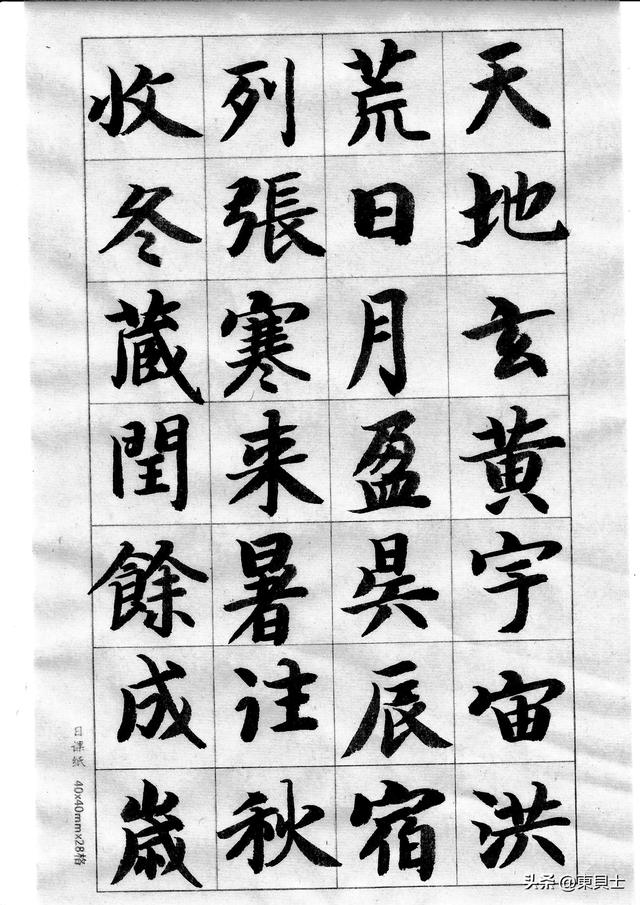 天地玄黄宇宙洪
荒日月盈昃辰宿
列張寒来暑往秋
收冬蔵閏餘成歳
日课纸 40x40mmx28格
头条 @東貝士